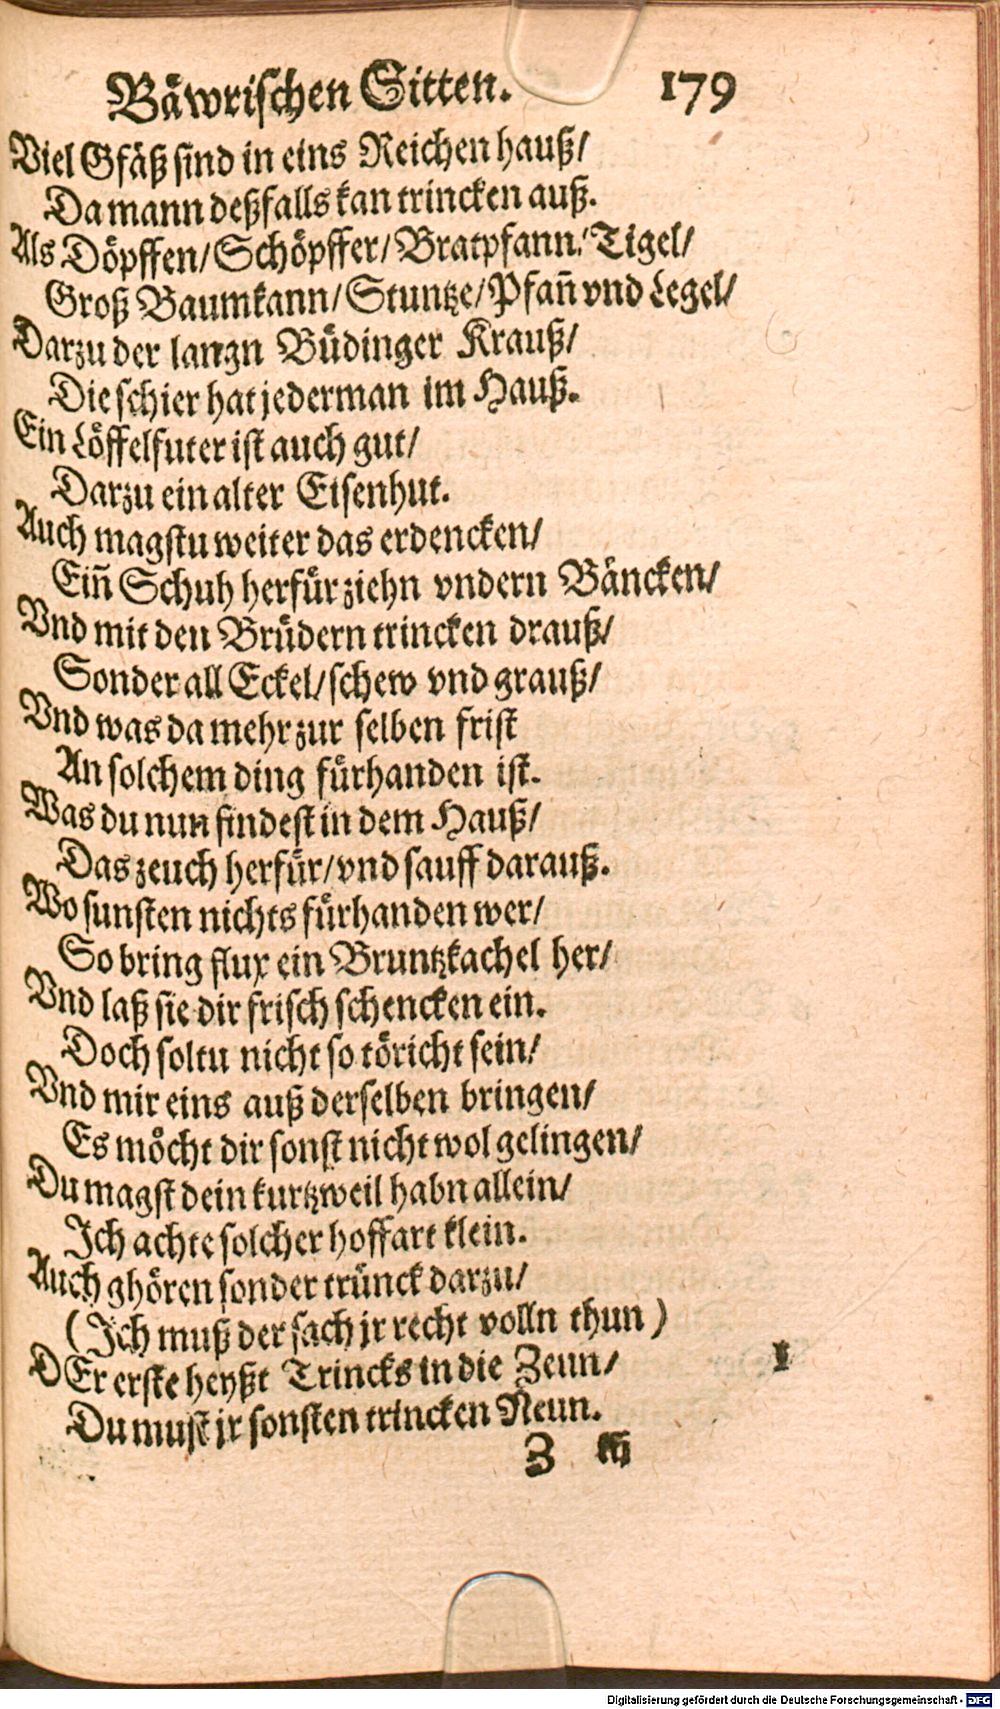 Bäwrischen Sitten. 179
Viel Gfäß sind in eins Reichen hauß/
Da mann deßfalls kan trincken auß.
Als Döpffen/Schöpffer/Bratpfann/Tigel/
Groß Baumkann/Stuntze/Pfañ vnd Legel/
Darzu der langn Büdinger Krauß/
Die schier hat jederman im Hauß.
Ein Löffelfuter ist auch gut/
Darzu ein alter Eisenhut.
Auch magstu weiter das erdencken/
Eiñ Schuh herfür ziehn vndern Bäncken/
Vnd mit den Brüdern trincken drauß/
Sonder all Eckel/schew vnd grauß/
Vnd was da mehr zur selben frist
An solchem ding fürhanden ist.
Was du nun findest in dem Hauß/
Das zeuch herfür/vnd sauff darauß.
Wo sunsten nichts fürhanden wer/
So bring flux ein Bruntzkachel her/
Vnd laß sie dir frisch schencken ein.
Doch soltu nicht so töricht sein/
Vnd mir eins auß derselben bringen/
Es möcht dir sonst nicht wol gelingen/
Du magst dein kurtzweil habn allein/
Ich achte solcher hoffart klein.
Auch ghören sonder trünck darzu/
(Ich muß der sach jr recht volln thun)
DEr erste heyßt Trincks in die Zeun/ 1
Du must jr sonsten trincken Neun.
Z iij
Digitalisierung gefördert durch die Deutsche Forschungsgemeinschaft - DFG